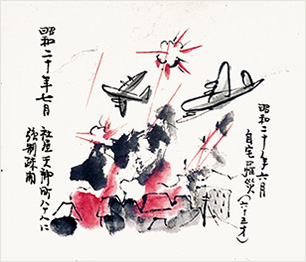 昭和二十年六月
自宅罹災(六十五才)
昭和二十年七月
社屋天神町
強制疎開